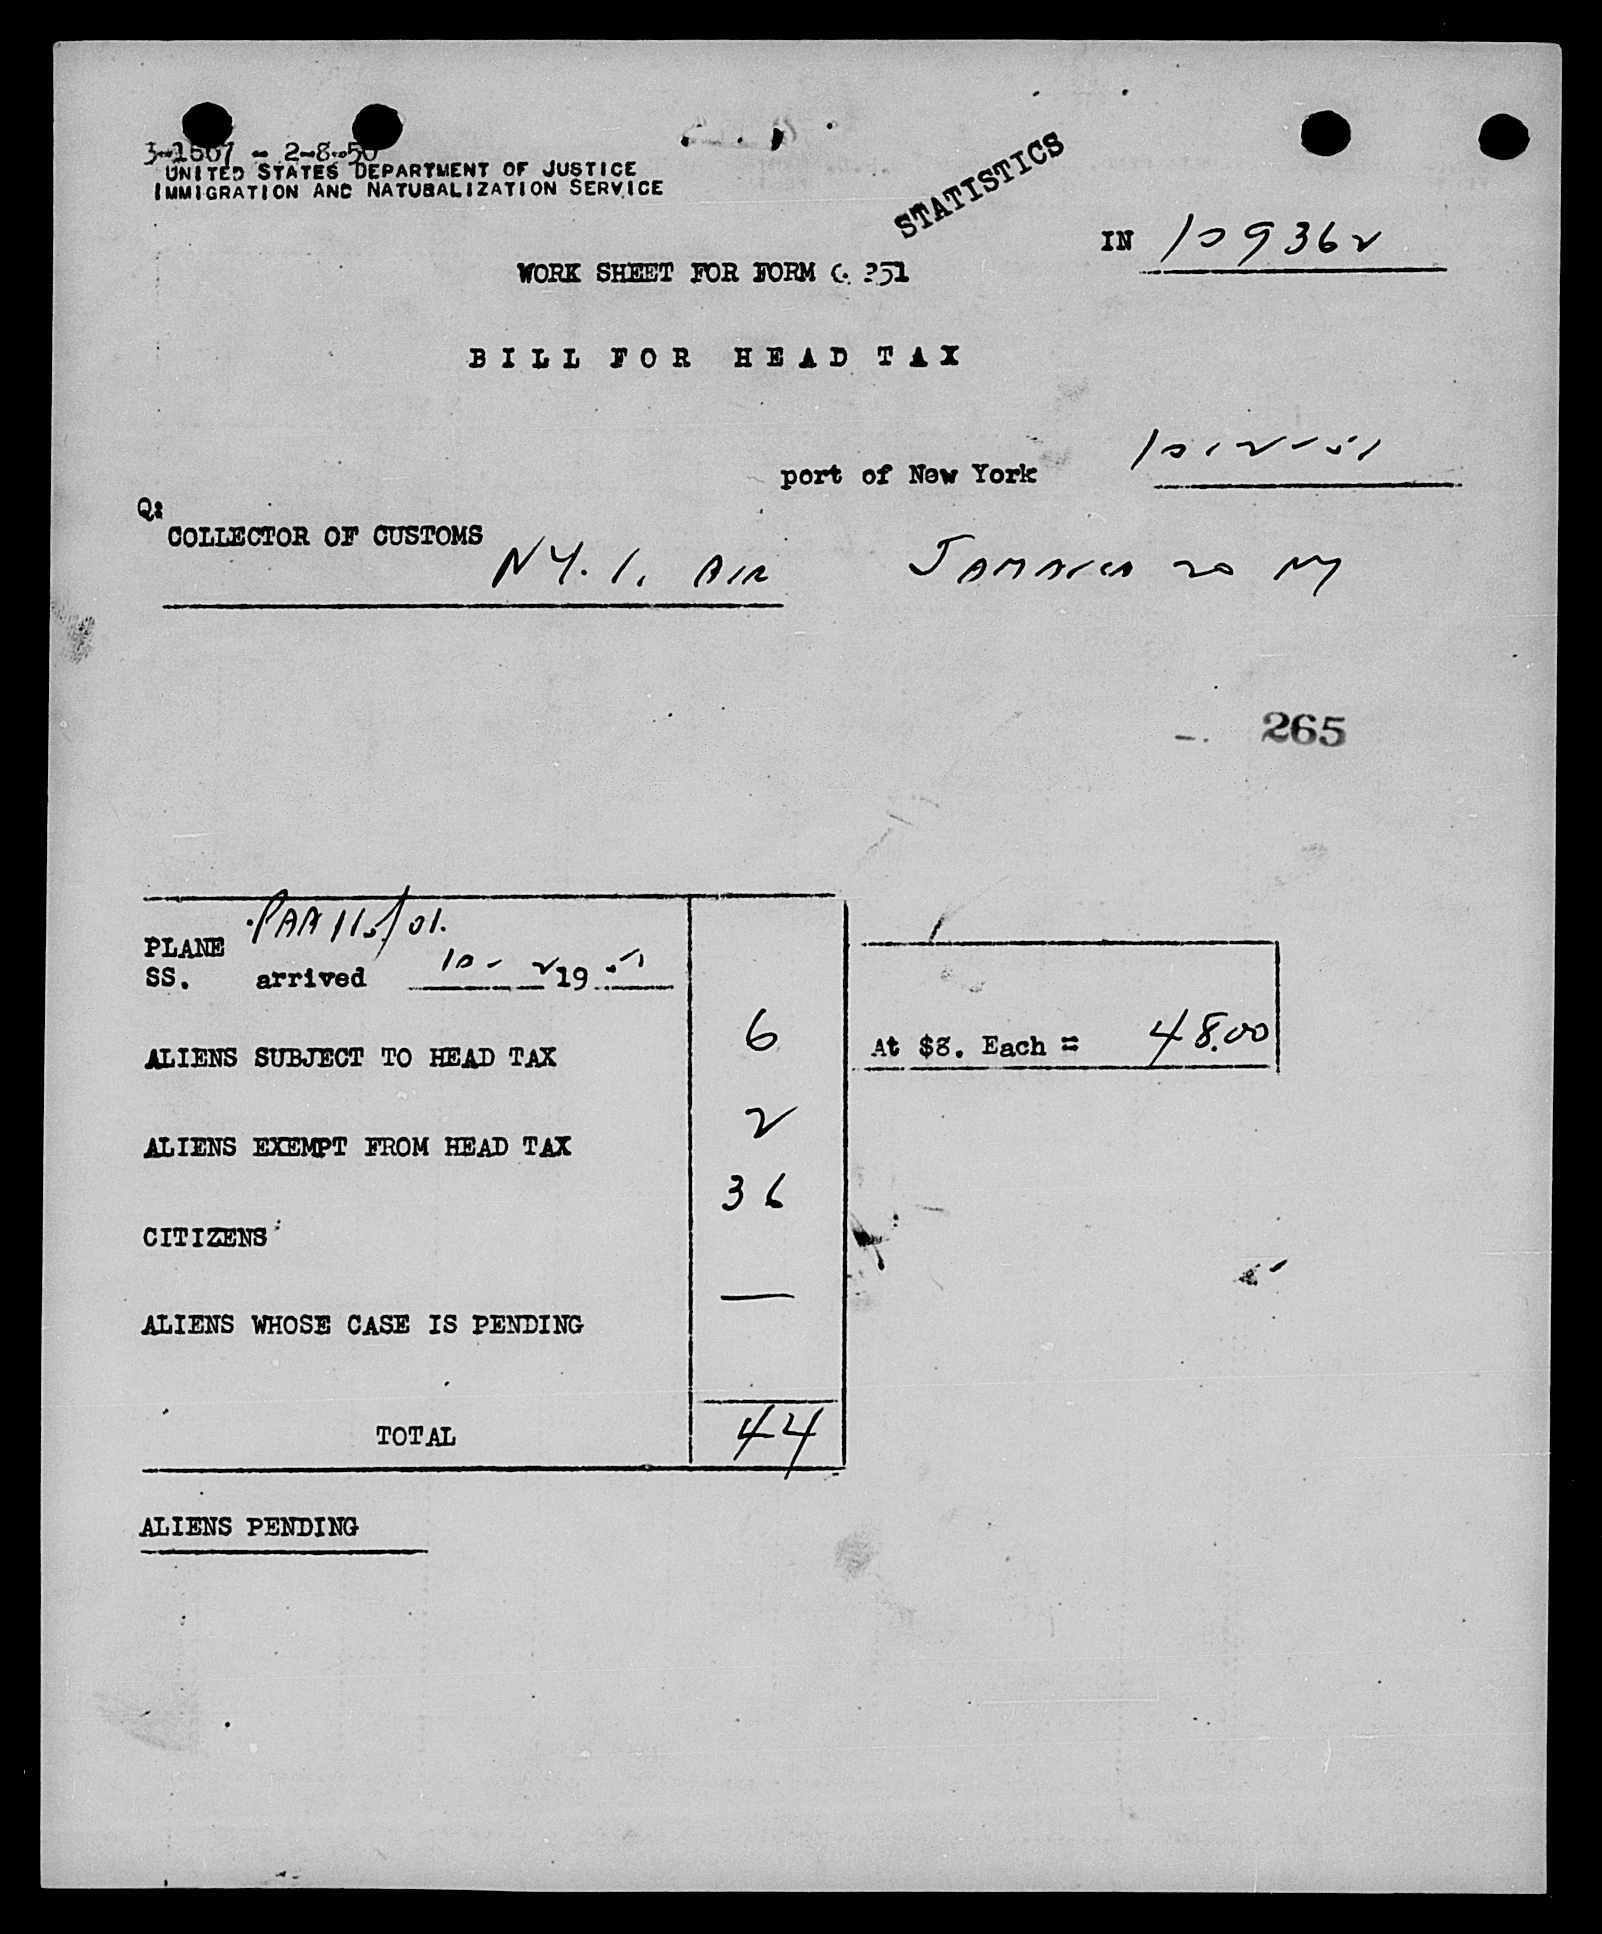 3-1667 - 2-8-50
UNITED STATES DEPARTMENT OF JUSTICE
IMMIGRATION AND NATURALIZATION SERVICE
STATISTICS
IN 109362
WORK SHEET FOR FORM G 251
BILL FOR HEAD TAX
port of New York 10-2-51
Q:
COLLECTOR OF CUSTOMS
N.Y. 1. AIR JAMAICA 20 NY
265
PAA 115/01.
PLANE
SS. arrived 10-2 19 51
ALIENS SUBJECT TO HEAD TAX 6 At $8. Each = 48.00
ALIENS EXEMPT FROM HEAD TAX 2
CITIZENS 36
ALIENS WHOSE CASE IS PENDING —
TOTAL 44
ALIENS PENDING